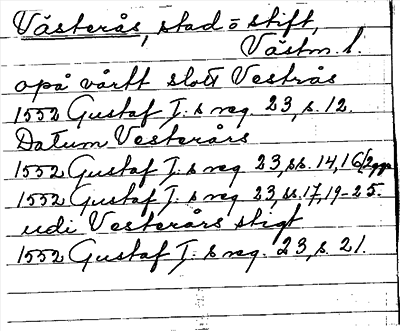 Västerås, stad o stift,
Västm. l.
opå vårtt slott Vestrås
1552 Gustaf I:s reg. 23, s. 12.
Datum Vesterårs
1552 Gustaf I:s reg 23, ss. 14, 16 (2 ggr
1552 Gustaf I:s reg 23, ss. 17, 19-25.
udi Vesterårs stigt
1552 Gustaf I:s reg. 23, s. 21.